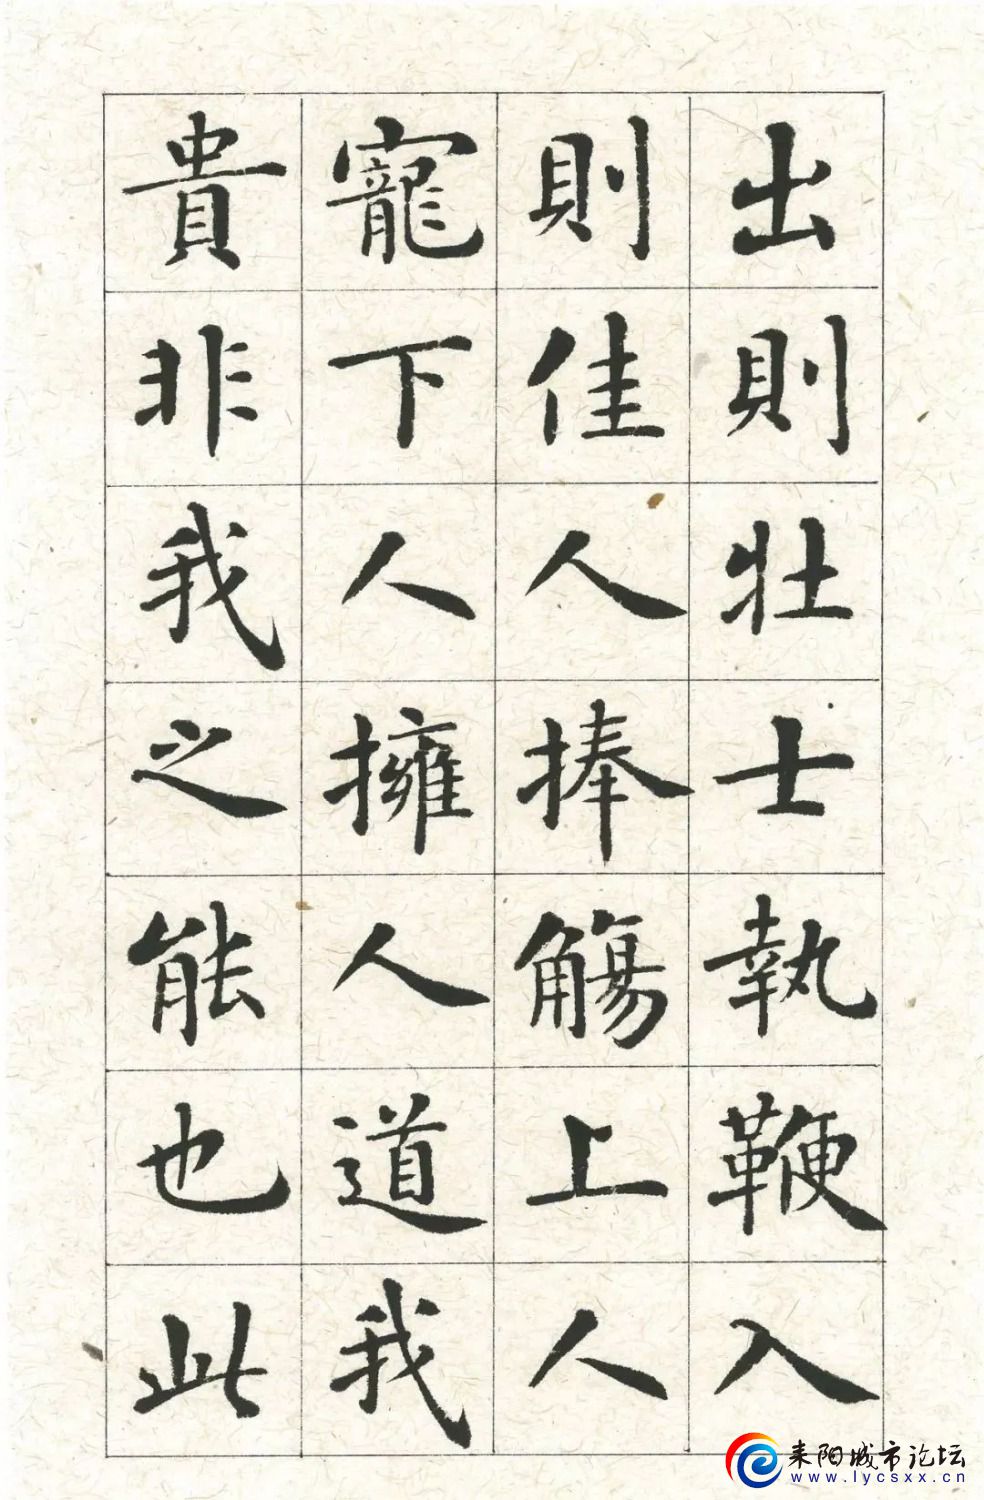 出則壯士執鞭入
則佳人捧觴上人
寵下人擁人道我
貴非我之能也此
耒阳城市论坛
www.lycsxx.cn